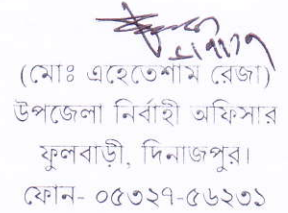 (মোঃ এহেতেশাম রেজা)
উপজেলা নির্বাহী অফিসার
ফুলবাড়ী, দিনাজপুর।
ফোন- ০৫৩২৭-৫৬২৩১